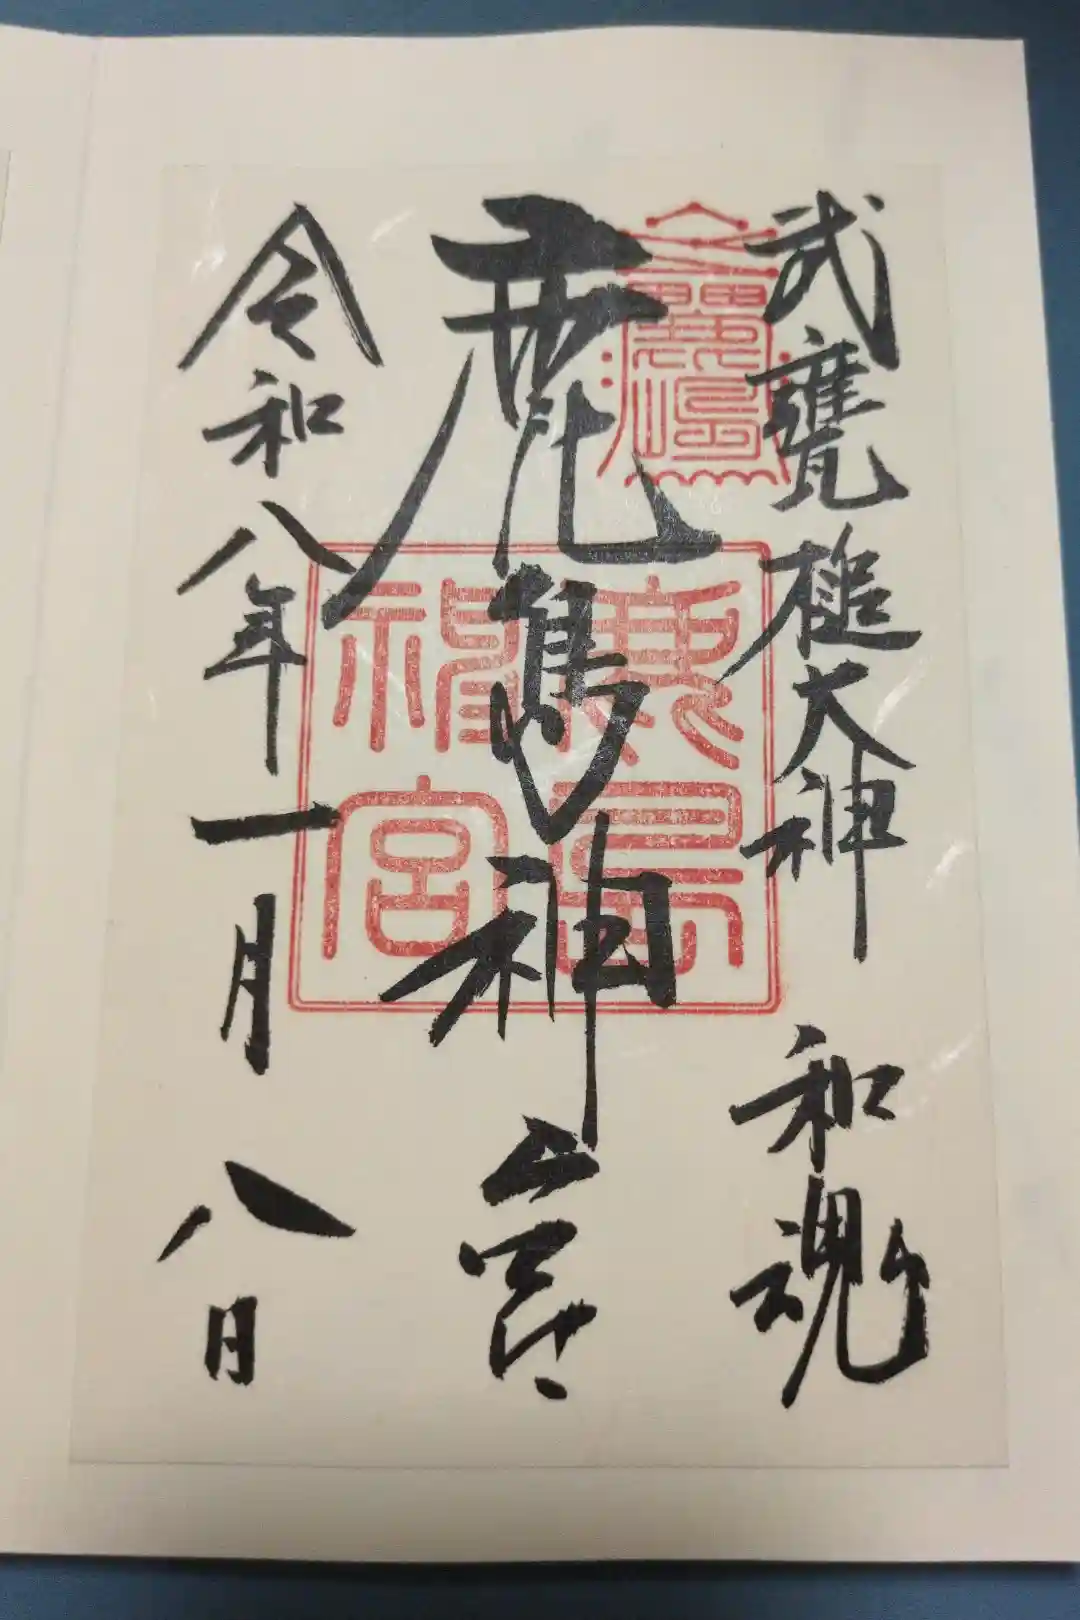 武甕槌大神 和魂
鹿島神宮
令和八年一月八日
鹿島神宮